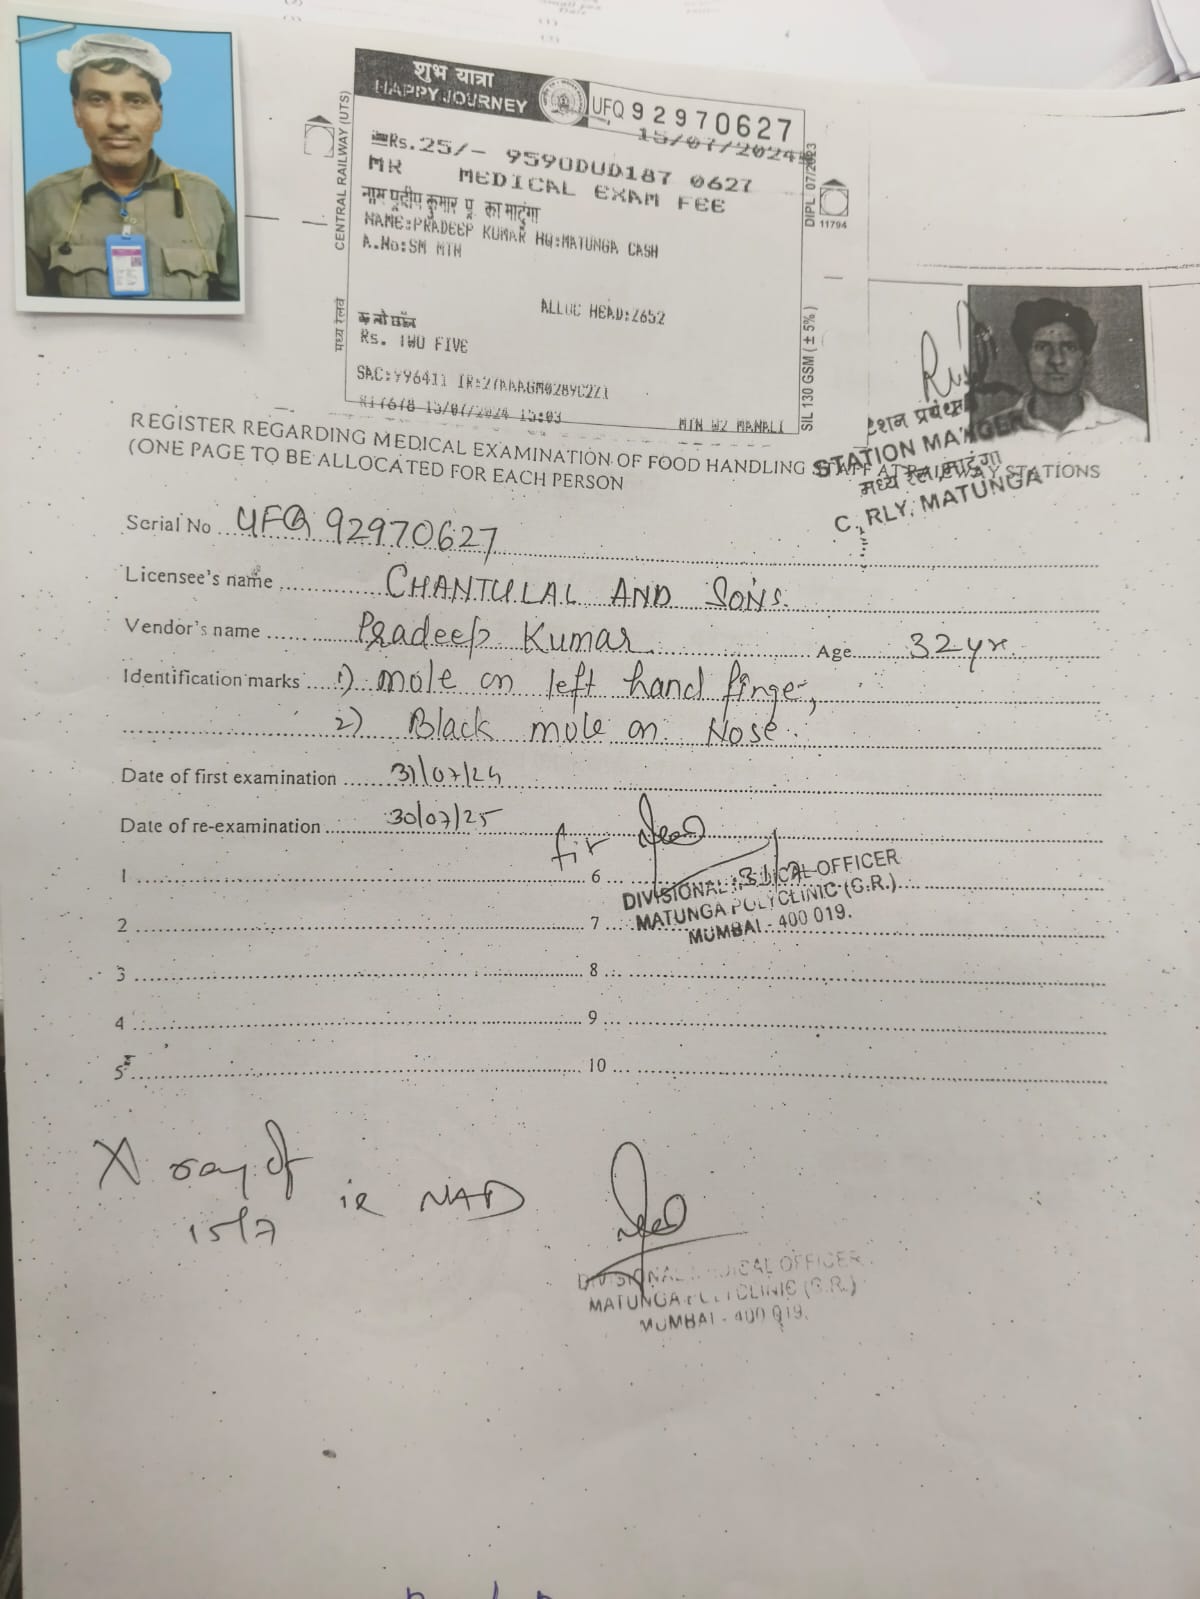 शुभ यात्रा
HAPPY JOURNEY
UFQ 92970627
15/07/2024
Rs.25/- 9590DUD187 0627
MR MEDICAL EXAM FEE
नाम प्रदीप कुमार पू का माटुंगा
NAME:PRADEEP KUMAR HQ:MATUNGA CASH
A.No:SM MTN
ALLOC HEAD:Z652
Rs. TWO FIVE
SAC:996411 IR:27AAAGM0289C2Z1
15/07/2024 15:03
MTN W2 MANALI
मध्य रेलवे CENTRAL RAILWAY (UTS)
SIL 130 GSM ( ± 5% ) DIPL 07/2023
11794
स्टेशन प्रबंधक
STATION MANAGER
मध्य रेल, माटुंगा
C. RLY. MATUNGA
REGISTER REGARDING MEDICAL EXAMINATION OF FOOD HANDLING STAFF AT RAILWAY STATIONS
(ONE PAGE TO BE ALLOCATED FOR EACH PERSON
Serial No UFQ 92970627
Licensee's name CHANTULAL AND SONS.
Vendor's name Pradeep Kumar Age 32 yr.
Identification marks 1) mole on left hand finger,
2) Black mole on Nose.
Date of first examination 31/07/24
Date of re-examination 30/07/25
fit
1 6 31/7
DIVISIONAL MEDICAL OFFICER
MATUNGA POLYCLINIC (C.R.)
MUMBAI - 400 019.
2 7
3 8
4 9
5 10
X ray of
15/7 is NAD
DIVISIONAL MEDICAL OFFICER
MATUNGA POLYCLINIC (C.R.)
MUMBAI - 400 019.